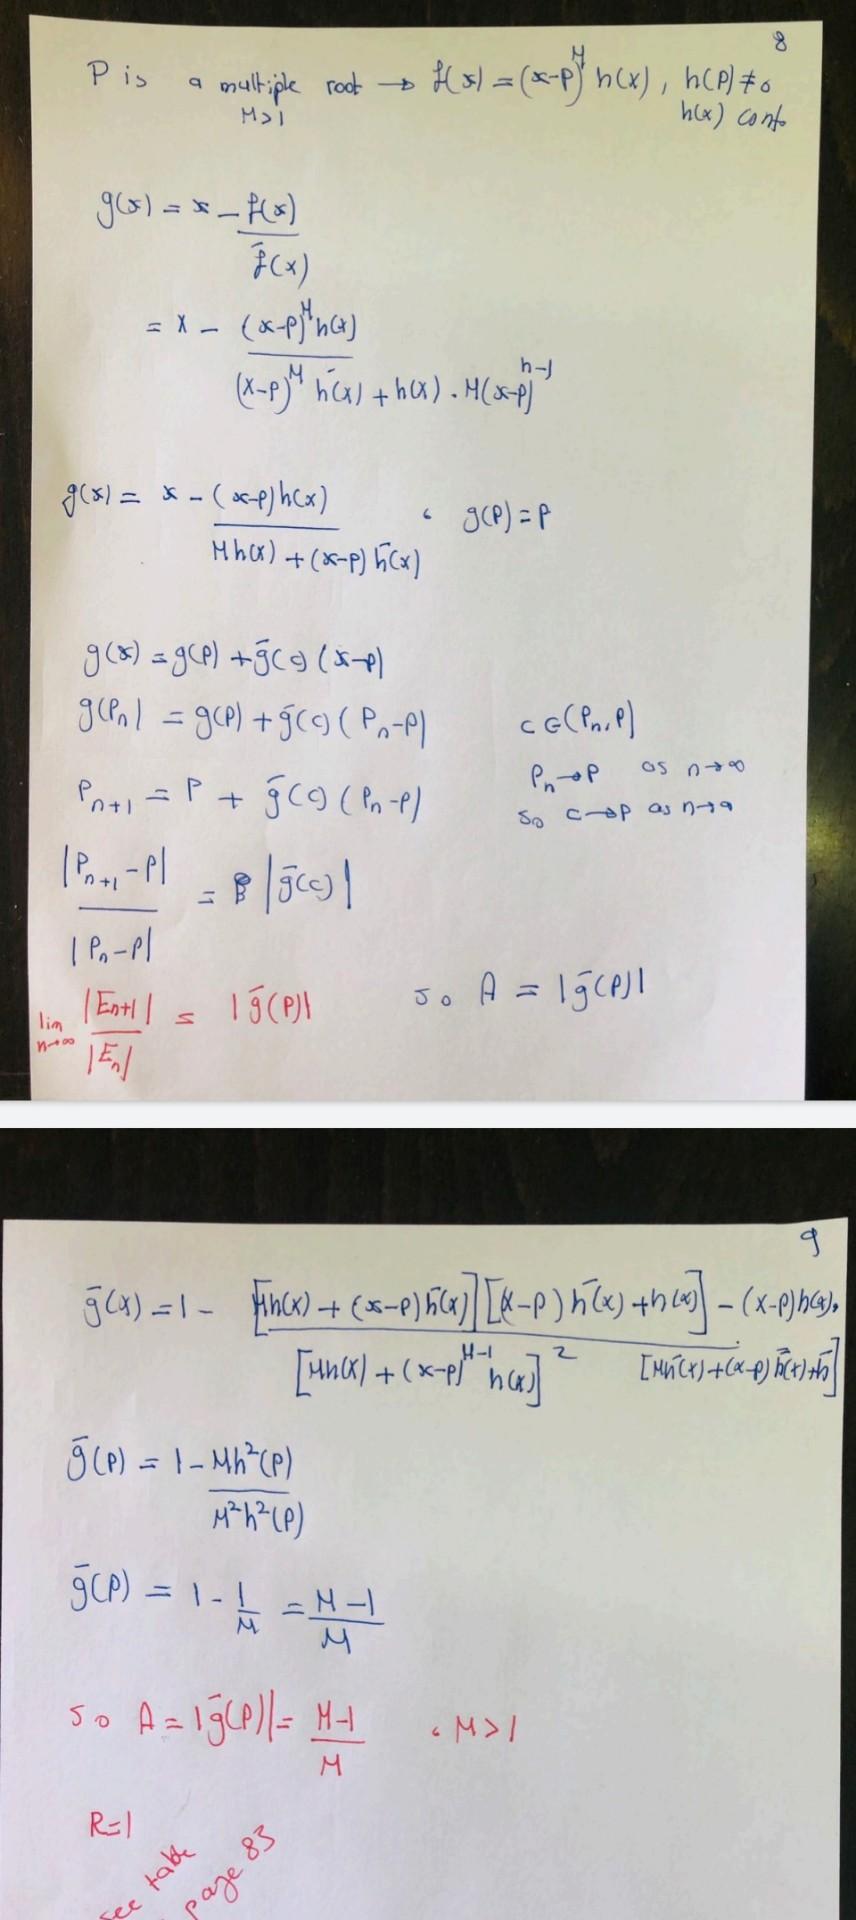 8
P is a multiple root → f(x) = (x-p)^M h(x), h(p) ≠ 0
M>1 h(x) cont.
g(x) = x - f(x) / f̄(x)
= x - (x-p)^M h(x) / (x-p)^M h̄(x) + h(x) . M(x-p)^h-1
g(x) = x - (x-p)h(x) / Mh(x) + (x-p) h̄(x) , g(p) = p
g(x) = g(p) + ḡ(c) (x-p)
g(Pn) = g(p) + ḡ(c) (Pn-p) c ∈ (Pn, p)
Pn → p as n→∞
Pn+1 = P + ḡ(c) (Pn-p) so c→p as n→∞
|Pn+1 - p| / |Pn-p| = |ḡ(c)|
lim n→∞ |En+1| / |En| = |ḡ(p)| so A = |ḡ(p)|
9
ḡ(x) = 1 - [Mh(x) + (x-p) h̄(x)] [(x-p) h̄(x) + h(x)] - (x-p)h(x).
[Mh(x) + (x-p)^M-1 h(x)]^2 [Mh̄(x) + (x-p) h̿(x) + h̄]
ḡ(p) = 1 - Mh²(p) / M²h²(p)
ḡ(p) = 1 - 1/M = M-1 / M
so A = |ḡ(p)| = M-1 / M , M>1
R=1
see table
page 83